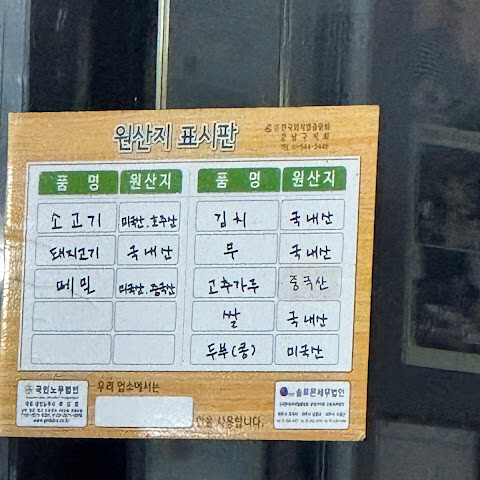 원산지 표시판
한국외식업중앙회
강남구지회
품 명 원산지 품 명 원산지
소고기 미국산.호주산 김치 국내산
돼지고기 국내산 무 국내산
메밀 미국산.중국산 고추가루 중국산
쌀 국내산
두부(콩) 미국산
국민노무법인
우리 업소에서는
솔트온세무법인
만을 사용합니다.